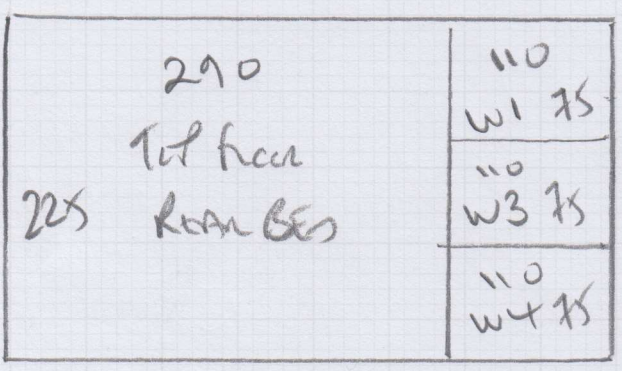 290
Top floor
225 Rear BED
110
W1 75
110
W3 75
110
W4 75